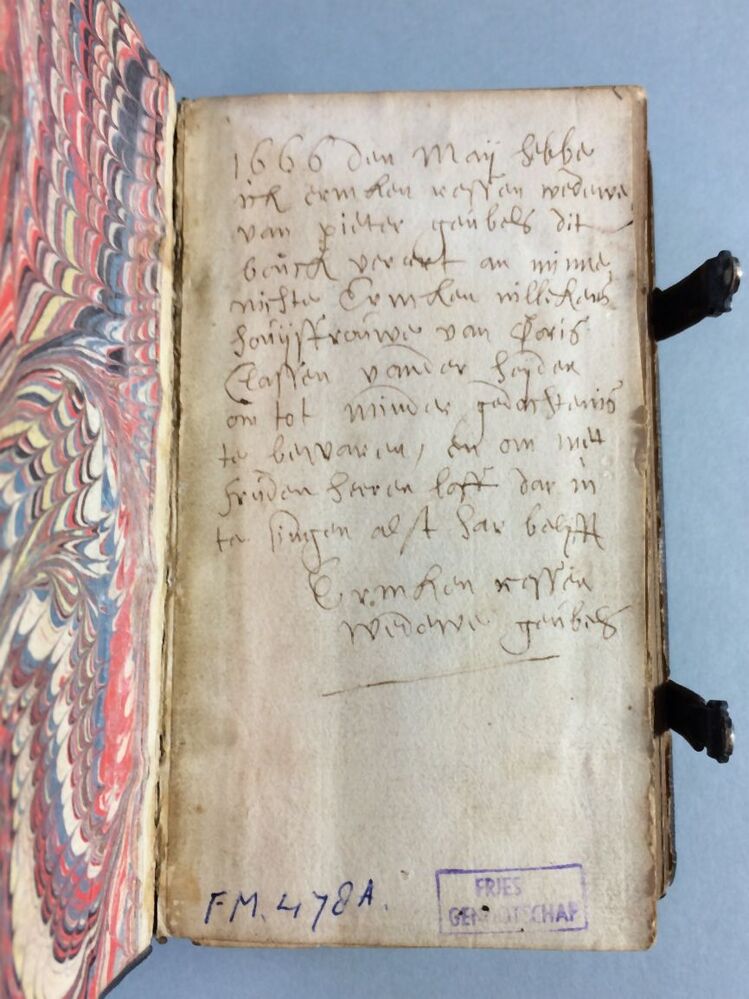 1666 den Maij hebbe
ick ermken kessen wedewe
van pieter geubels dit
bouck vereert an mijnne
nichte Ermken willekens
houijsfrouwe van Joris
Classen vander heijden
om tot mijnder gedachtenis
te bewaren, en om met
frijden heeren loff dar in
te singen alst har belifft
Ermken kessen
wedewe geubels
FM. 478A.
FRIES
GENOOTSCHAP